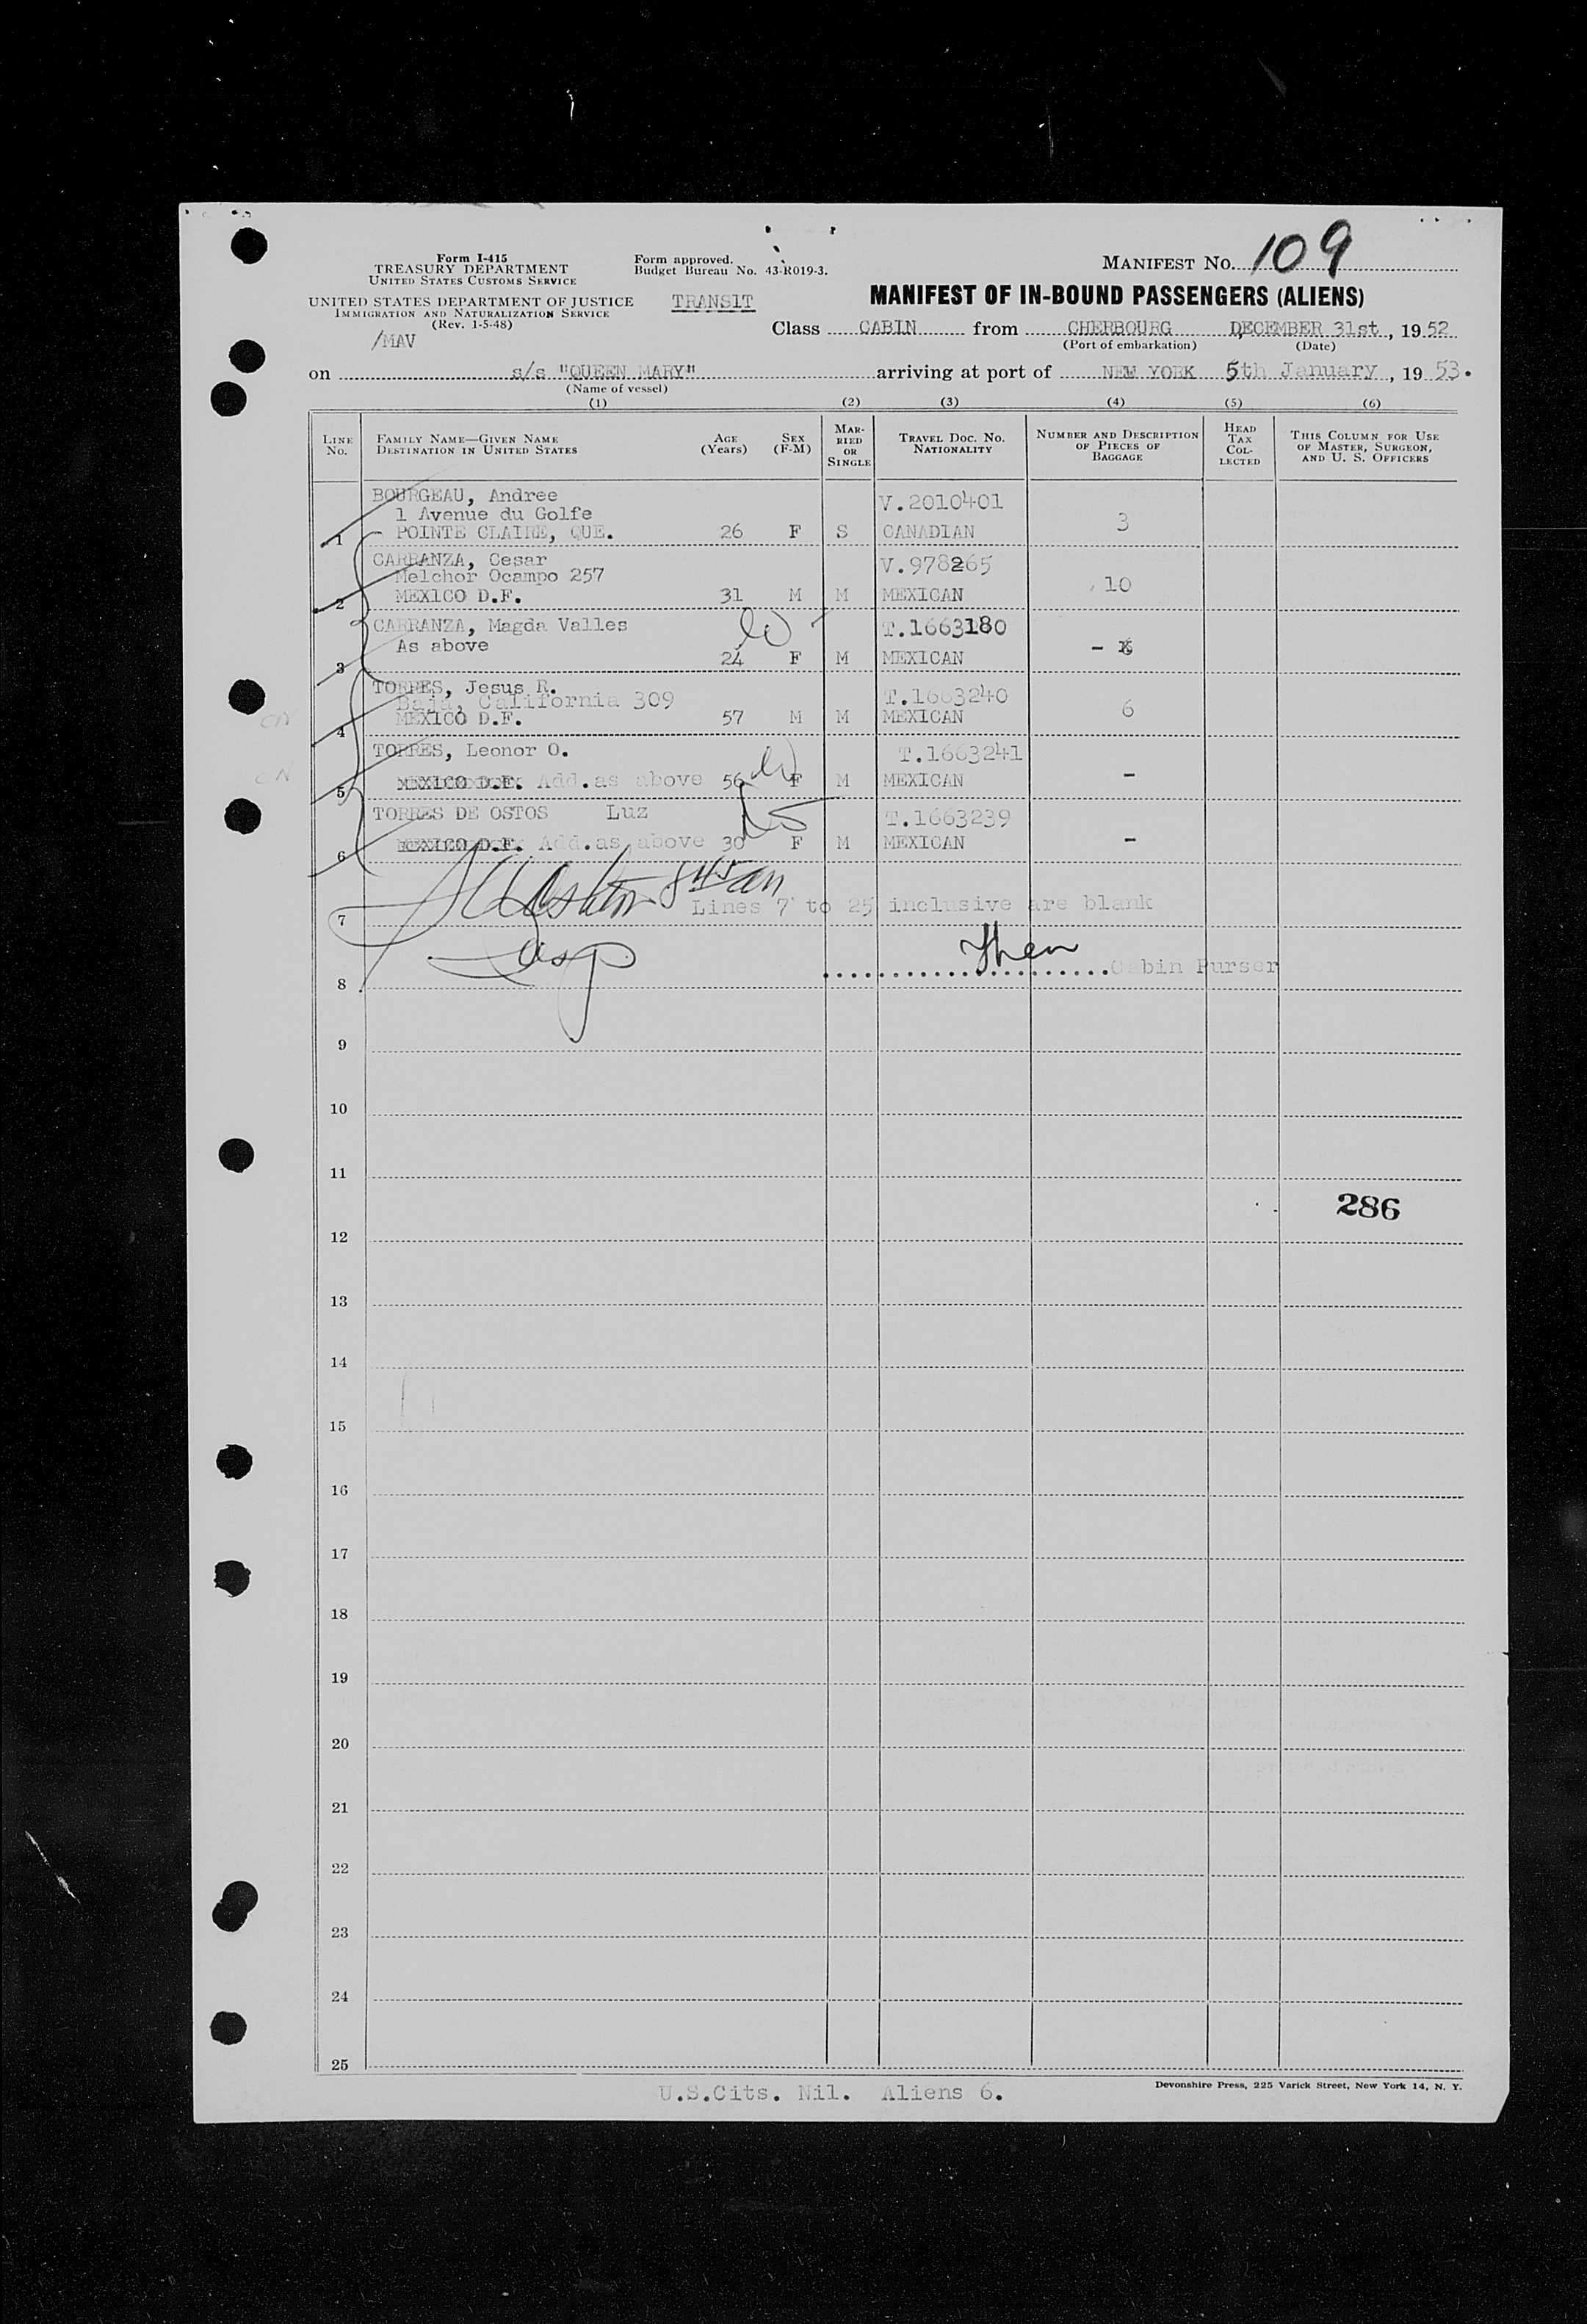 Form I-415
TREASURY DEPARTMENT
UNITED STATES CUSTOMS SERVICE
UNITED STATES DEPARTMENT OF JUSTICE
IMMIGRATION AND NATURALIZATION SERVICE
(Rev. 1-5-48)
/MAV
Form approved.
Budget Bureau No. 43-R019-3.
TRANSIT
MANIFEST NO. 109
MANIFEST OF IN-BOUND PASSENGERS (ALIENS)
Class CABIN from CHERBOURG DECEMBER 31st, 1952
(Port of embarkation) (Date)
on s/s "QUEEN MARY" arriving at port of NEW YORK 5th January, 1953.
(Name of vessel)
(1) (2) (3) (4) (5) (6)
LINE NO. FAMILY NAME—GIVEN NAME DESTINATION IN UNITED STATES AGE (Years) SEX (F-M) MARRIED OR SINGLE TRAVEL DOC. NO. NATIONALITY NUMBER AND DESCRIPTION OF PIECES OF BAGGAGE HEAD TAX COLLECTED THIS COLUMN FOR USE OF MASTER, SURGEON, AND U. S. OFFICERS
BOURGEAU, Andree V.2010401
1 Avenue du Golfe 3
1 POINTE CLAIRE, QUE. 26 F S CANADIAN
CARRANZA, Cesar V.978265
Melchor Ocampo 257 10
2 MEXICO D.F. 31 M M MEXICAN
CARRANZA, Magda Valles T.1663180
As above -
3 24 F M MEXICAN
TORRES, Jesus R. T.1663240
Baja, California 309 6
4 MEXICO D.F. 57 M M MEXICAN
TORRES, Leonor O. T.1663241
5 MEXICO D.F. Add.as above 56 F M MEXICAN -
TORRES DE OSTOS Luz T.1663239
6 MEXICO D.F. Add.as above 30 F M MEXICAN -
845 am
7 Lines 7 to 25 inclusive are blank
8 Cabin Purser
9
10
11
286
12
13
14
15
16
17
18
19
20
21
22
23
24
25
U.S.Cits. Nil. Aliens 6.
Devonshire Press, 225 Varick Street, New York 14, N. Y.